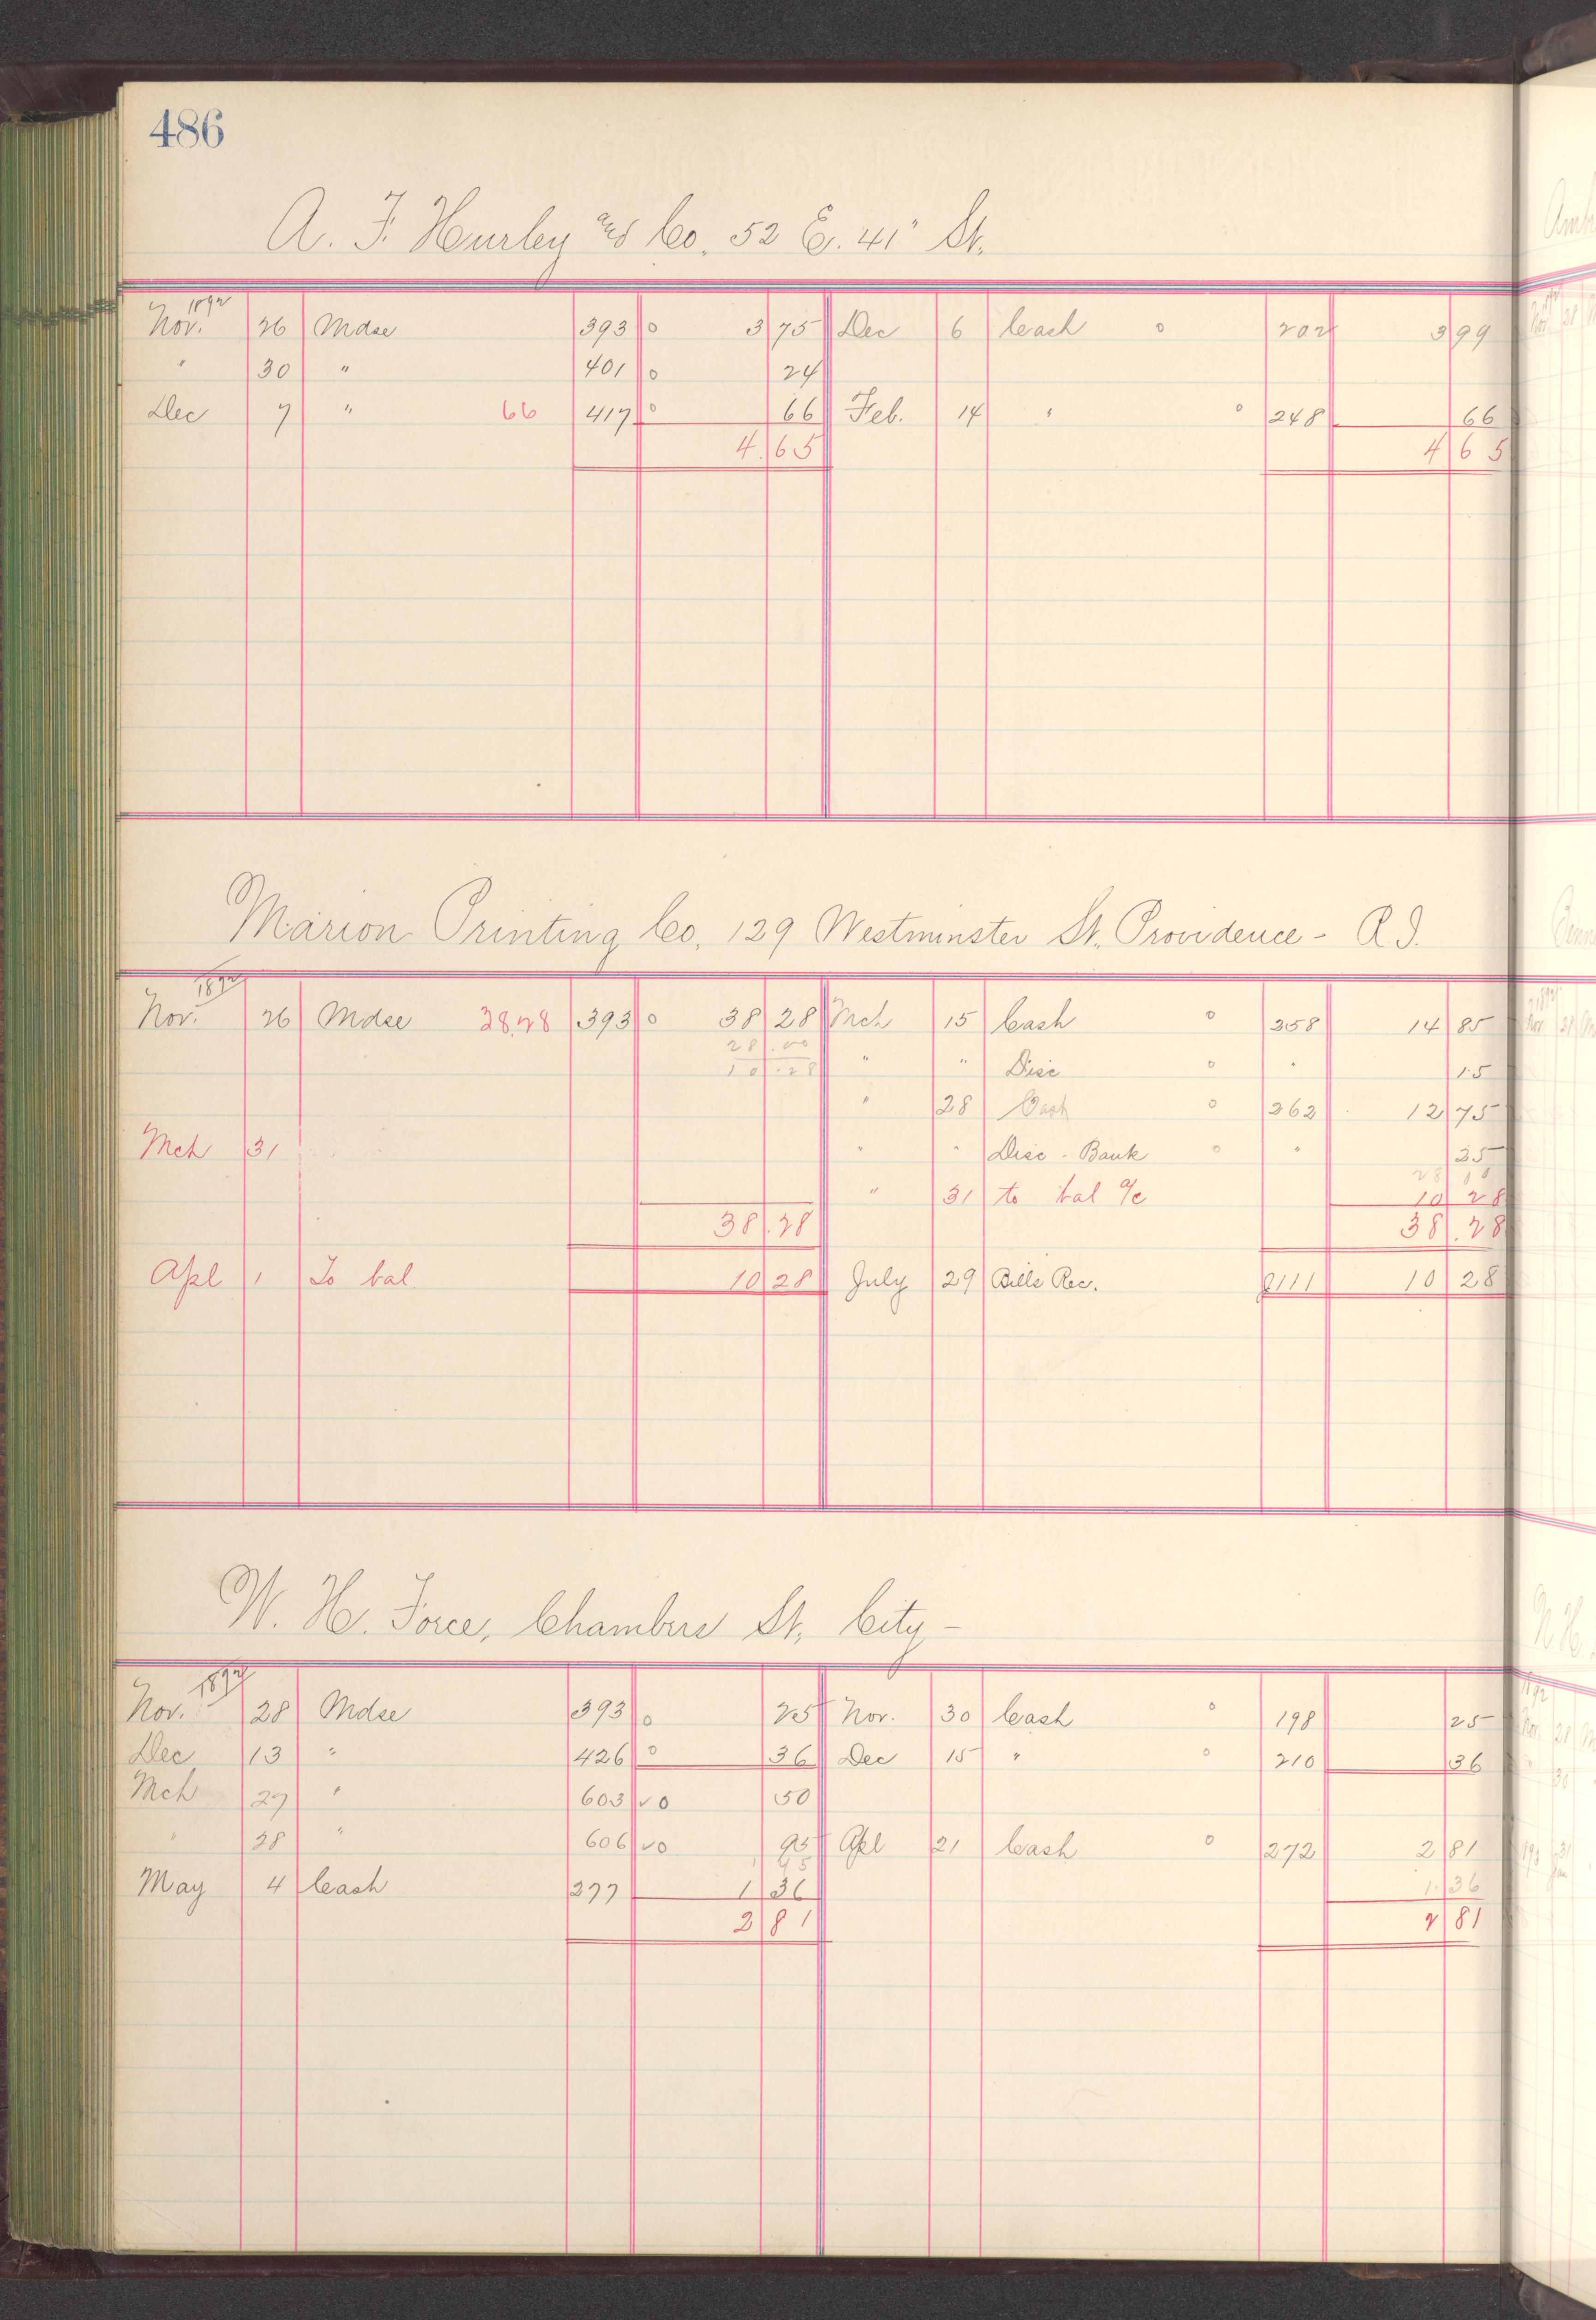 486
A. F. Hurley and Co. 52 E. 41" St.
1892
Nov. 26 Mdse 393 o 3 75 Dec 6 Cash o 202 3 99
" 30 " 401 o 24
Dec 7 " 66 417 o 66 Feb. 14 " o 248 66
4.65 4 65
Marion Printing Co. 129 Westminster St. Providence - R.I.
1892
Nov. 26 Mdse 38.28 393 o 38 28 Mch 15 Cash o 258 14 85
28.00
10.28 " " Disc o " 15
" 28 Cash o 262 12 75
Mch 31 " " Disc - Bank o " 25
28 00
" 31 to bal a/c 10 28
38.28 38.28
Apl 1 To bal 10 28 July 29 Bills Rec. J111 10 28
W. H. Force, Chambers St, City -
1892
Nov. 28 Mdse 393 o 25 Nov. 30 Cash o 198 25
Dec 13 " 426 o 36 Dec 15 " o 210 36
Mch 27 " 603 vo 50
" 28 " 606 vo 95 Apl 21 Cash o 272 2 81
1 45
May 4 Cash 277 1 36 1.36
2 81 2 81